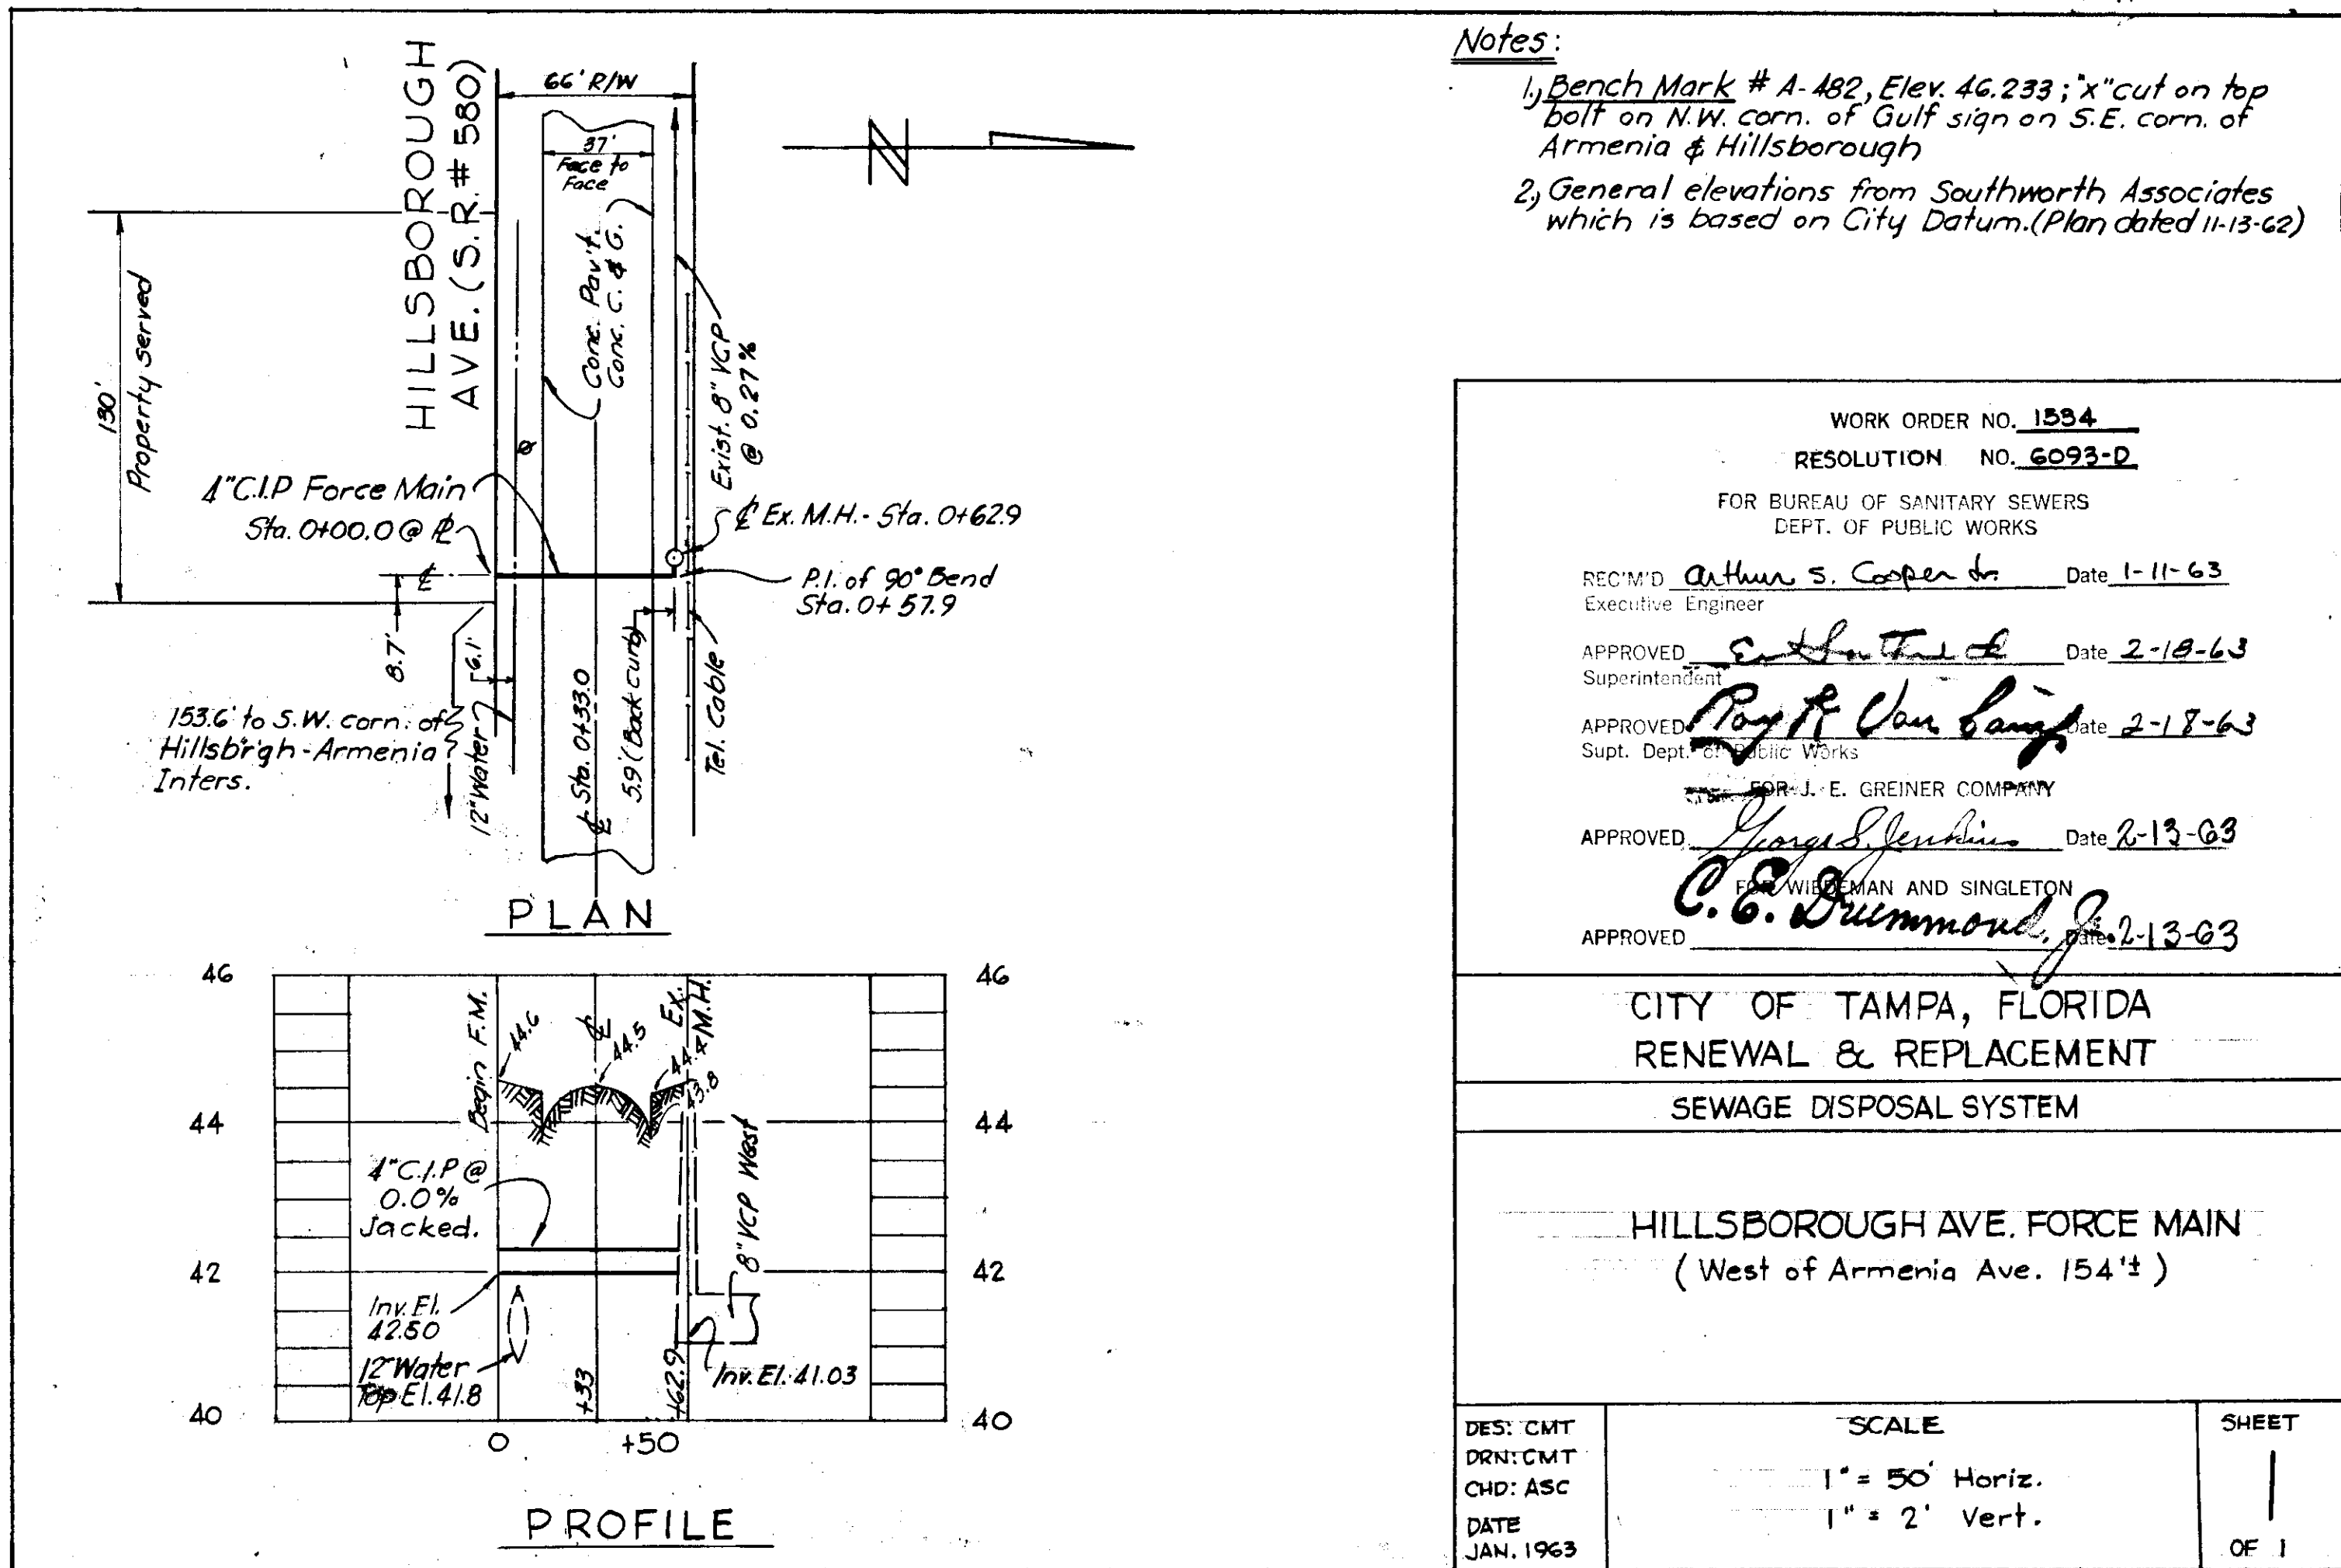 HILLSBOROUGH
AVE. (S.R. # 580)
66' R/W
37'
Face to
Face
Conc. Pav't.
Conc. C. & G.
Exist. 8" VCP
@ 0.27%
N
130'
Property served
4" C.I.P Force Main
Sta. 0+00.0 @ PL
CL
CL Ex. M.H. - Sta. 0+62.9
P.I. of 90° Bend
Sta. 0+57.9
8.7'
6.1'
12" Water
CL Sta. 0+33.0
5.9' (Back curb)
Tel. Cable
153.6' to S.W. corn. of
Hillsbr'gh - Armenia
Inters.
PLAN
46
44
42
40
46
44
42
40
Begin F.M.
44.6
CL
44.5
Ex.
M.H.
44.4
43.8
4" C.I.P @
0.0%
Jacked.
8" VCP West
Inv. El.
42.50
12" Water
Top El. 41.8
+33
+62.9
Inv. El. 41.03
0
+50
PROFILE
Notes:
1.) Bench Mark # A-482, Elev. 46.233; "x" cut on top
bolt on N.W. corn. of Gulf sign on S.E. corn. of
Armenia & Hillsborough
2.) General elevations from Southworth Associates
which is based on City Datum. (Plan dated 11-13-62)
WORK ORDER NO. 1534
RESOLUTION NO. 6093-D
FOR BUREAU OF SANITARY SEWERS
DEPT. OF PUBLIC WORKS
REC'M'D Arthur S. Cooper Jr. Date 1-11-63
Executive Engineer
APPROVED Date 2-18-63
Superintendent
APPROVED Roy R Van Date 2-18-63
Supt. Dept. of Public Works
FOR J. E. GREINER COMPANY
APPROVED George S. Jenkins Date 2-13-63
FOR WIEDEMAN AND SINGLETON
APPROVED C. E. Drummond, Jr. Date 2-13-63
CITY OF TAMPA, FLORIDA
RENEWAL & REPLACEMENT
SEWAGE DISPOSAL SYSTEM
HILLSBOROUGH AVE. FORCE MAIN
(West of Armenia Ave. 154'±)
DES: CMT
DRN: CMT
CHD: ASC
DATE
JAN. 1963
SCALE
1" = 50' Horiz.
1" = 2' Vert.
SHEET
1
OF 1